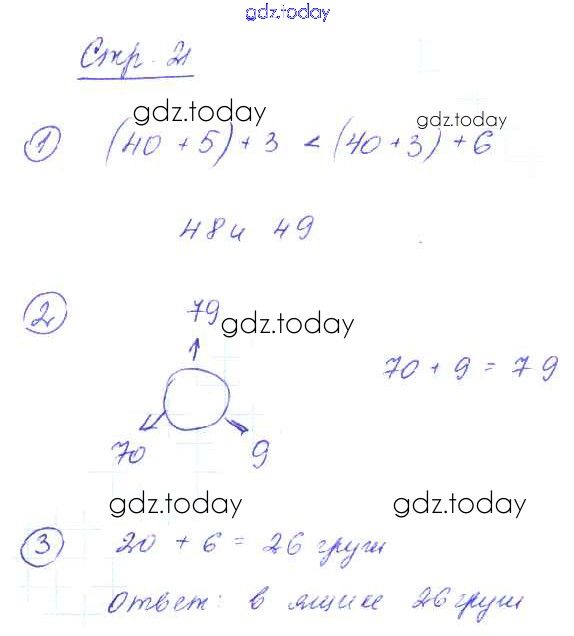 gdz.today
Стр. 21
gdz.today
gdz.today
1 (40 + 5) + 3 < (40 + 3) + 6
48 и 49
2
79
gdz.today
70 + 9 = 79
70 9
gdz.today gdz.today
3 20 + 6 = 26 груш
Ответ: в ящике 26 груш